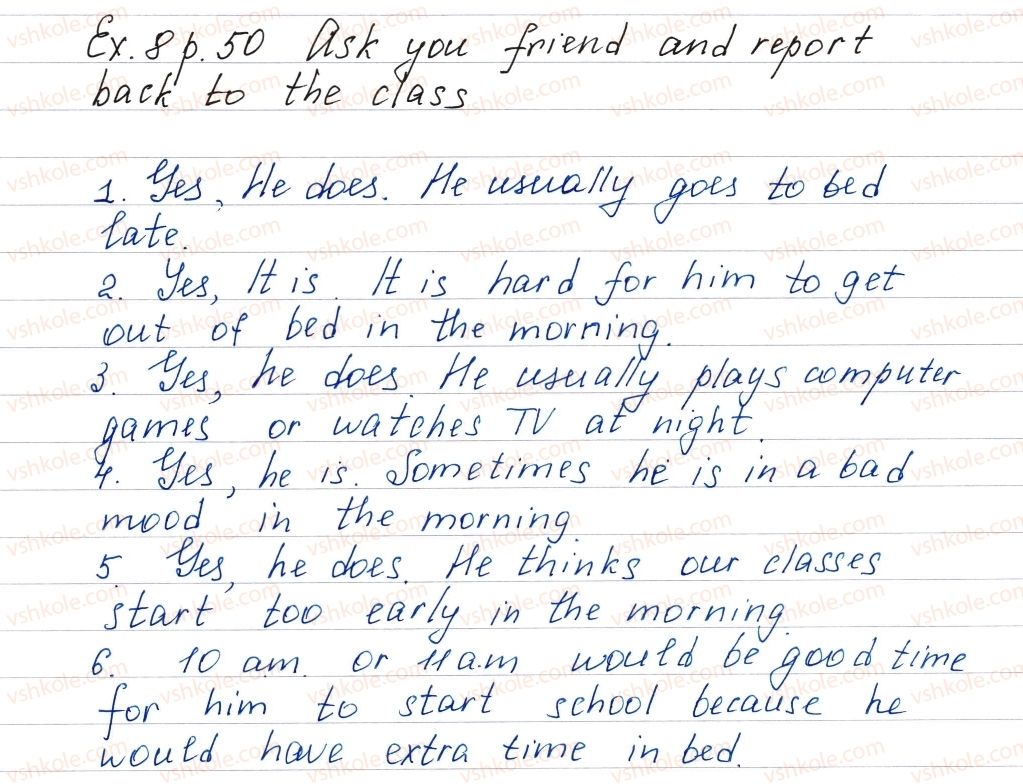 Ex. 8 p. 50 Ask you friend and report
back to the class
1. Yes, He does. He usually goes to bed
late.
2. Yes, It is. It is hard for him to get
out of bed in the morning.
3. Yes, he does. He usually plays computer
games or watches TV at night.
4. Yes, he is. Sometimes he is in a bad
mood in the morning.
5. Yes, he does. He thinks our classes
start too early in the morning.
6. 10 a.m. or 11 a.m would be good time
for him to start school because he
would have extra time in bed.